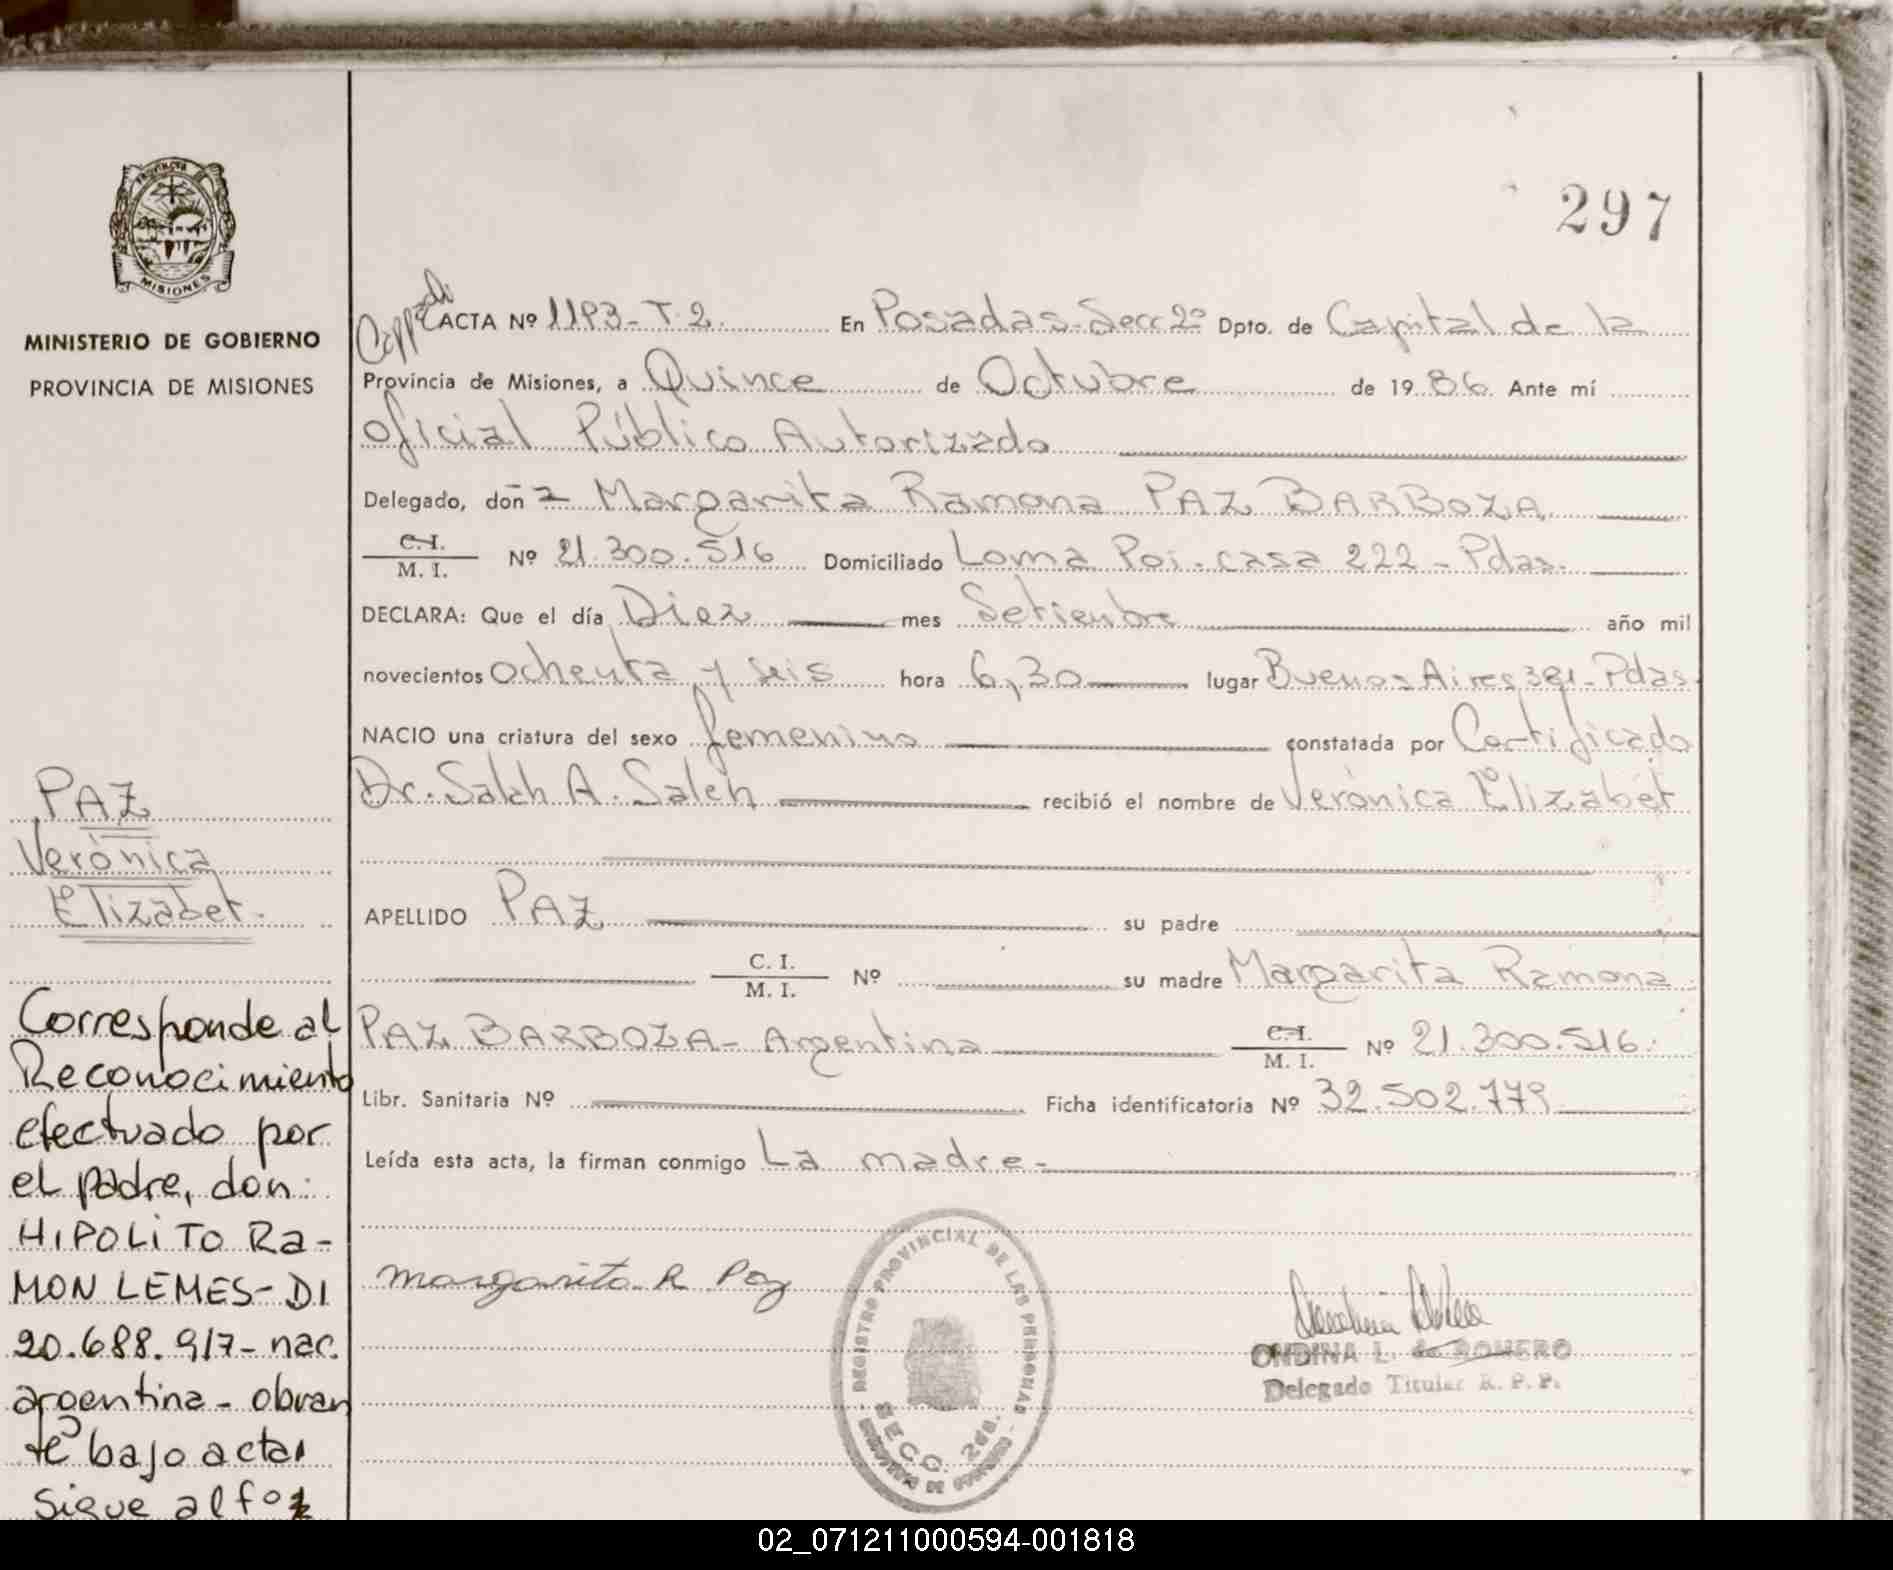 297
PROVINCIA DE
MISIONES
MINISTERIO DE GOBIERNO
PROVINCIA DE MISIONES
ACTA Nº 1193-T.2. En Posadas-Secc 2º Dpto. de Capital de la
Provincia de Misiones, a Quince de Octubre de 1986. Ante mí
Oficial Público Autorizado
Delegado, don-a- Margarita Ramona PAZ BARBOZA
C.I./M. I. Nº 21.300.516 Domiciliado Loma Poi-casa 222-Pdas.
DECLARA: Que el día Diez mes Setiembre año mil
novecientos ochenta y seis hora 6,30 lugar Buenos Aires 381-Pdas.
NACIO una criatura del sexo femenino constatada por Certificado
Dr. Saleh A. Saleh recibió el nombre de Verónica Elizabet
APELLIDO PAZ su padre
C. I./M. I. Nº su madre Margarita Ramona
PAZ BARBOZA- Argentina C.I./M. I. Nº 21.300.516.
Libr. Sanitaria Nº Ficha identificatoria Nº 32.502.779
Leída esta acta, la firman conmigo La madre-
Margarita R Paz
REGISTRO PROVINCIAL DE LAS PERSONAS
SECC. 2da.
ONDINA L. de ROMERO
Delegado Titular R. P. P.
PAZ
Verónica
Elizabet.
Corresponde al
Reconocimiento
efectuado por
el padre, don:
HIPOLITO RA-
MON LEMES-DI
20.688.917- nac.
argentina- obran
te bajo acta
sigue al fº
02_071211000594-001818